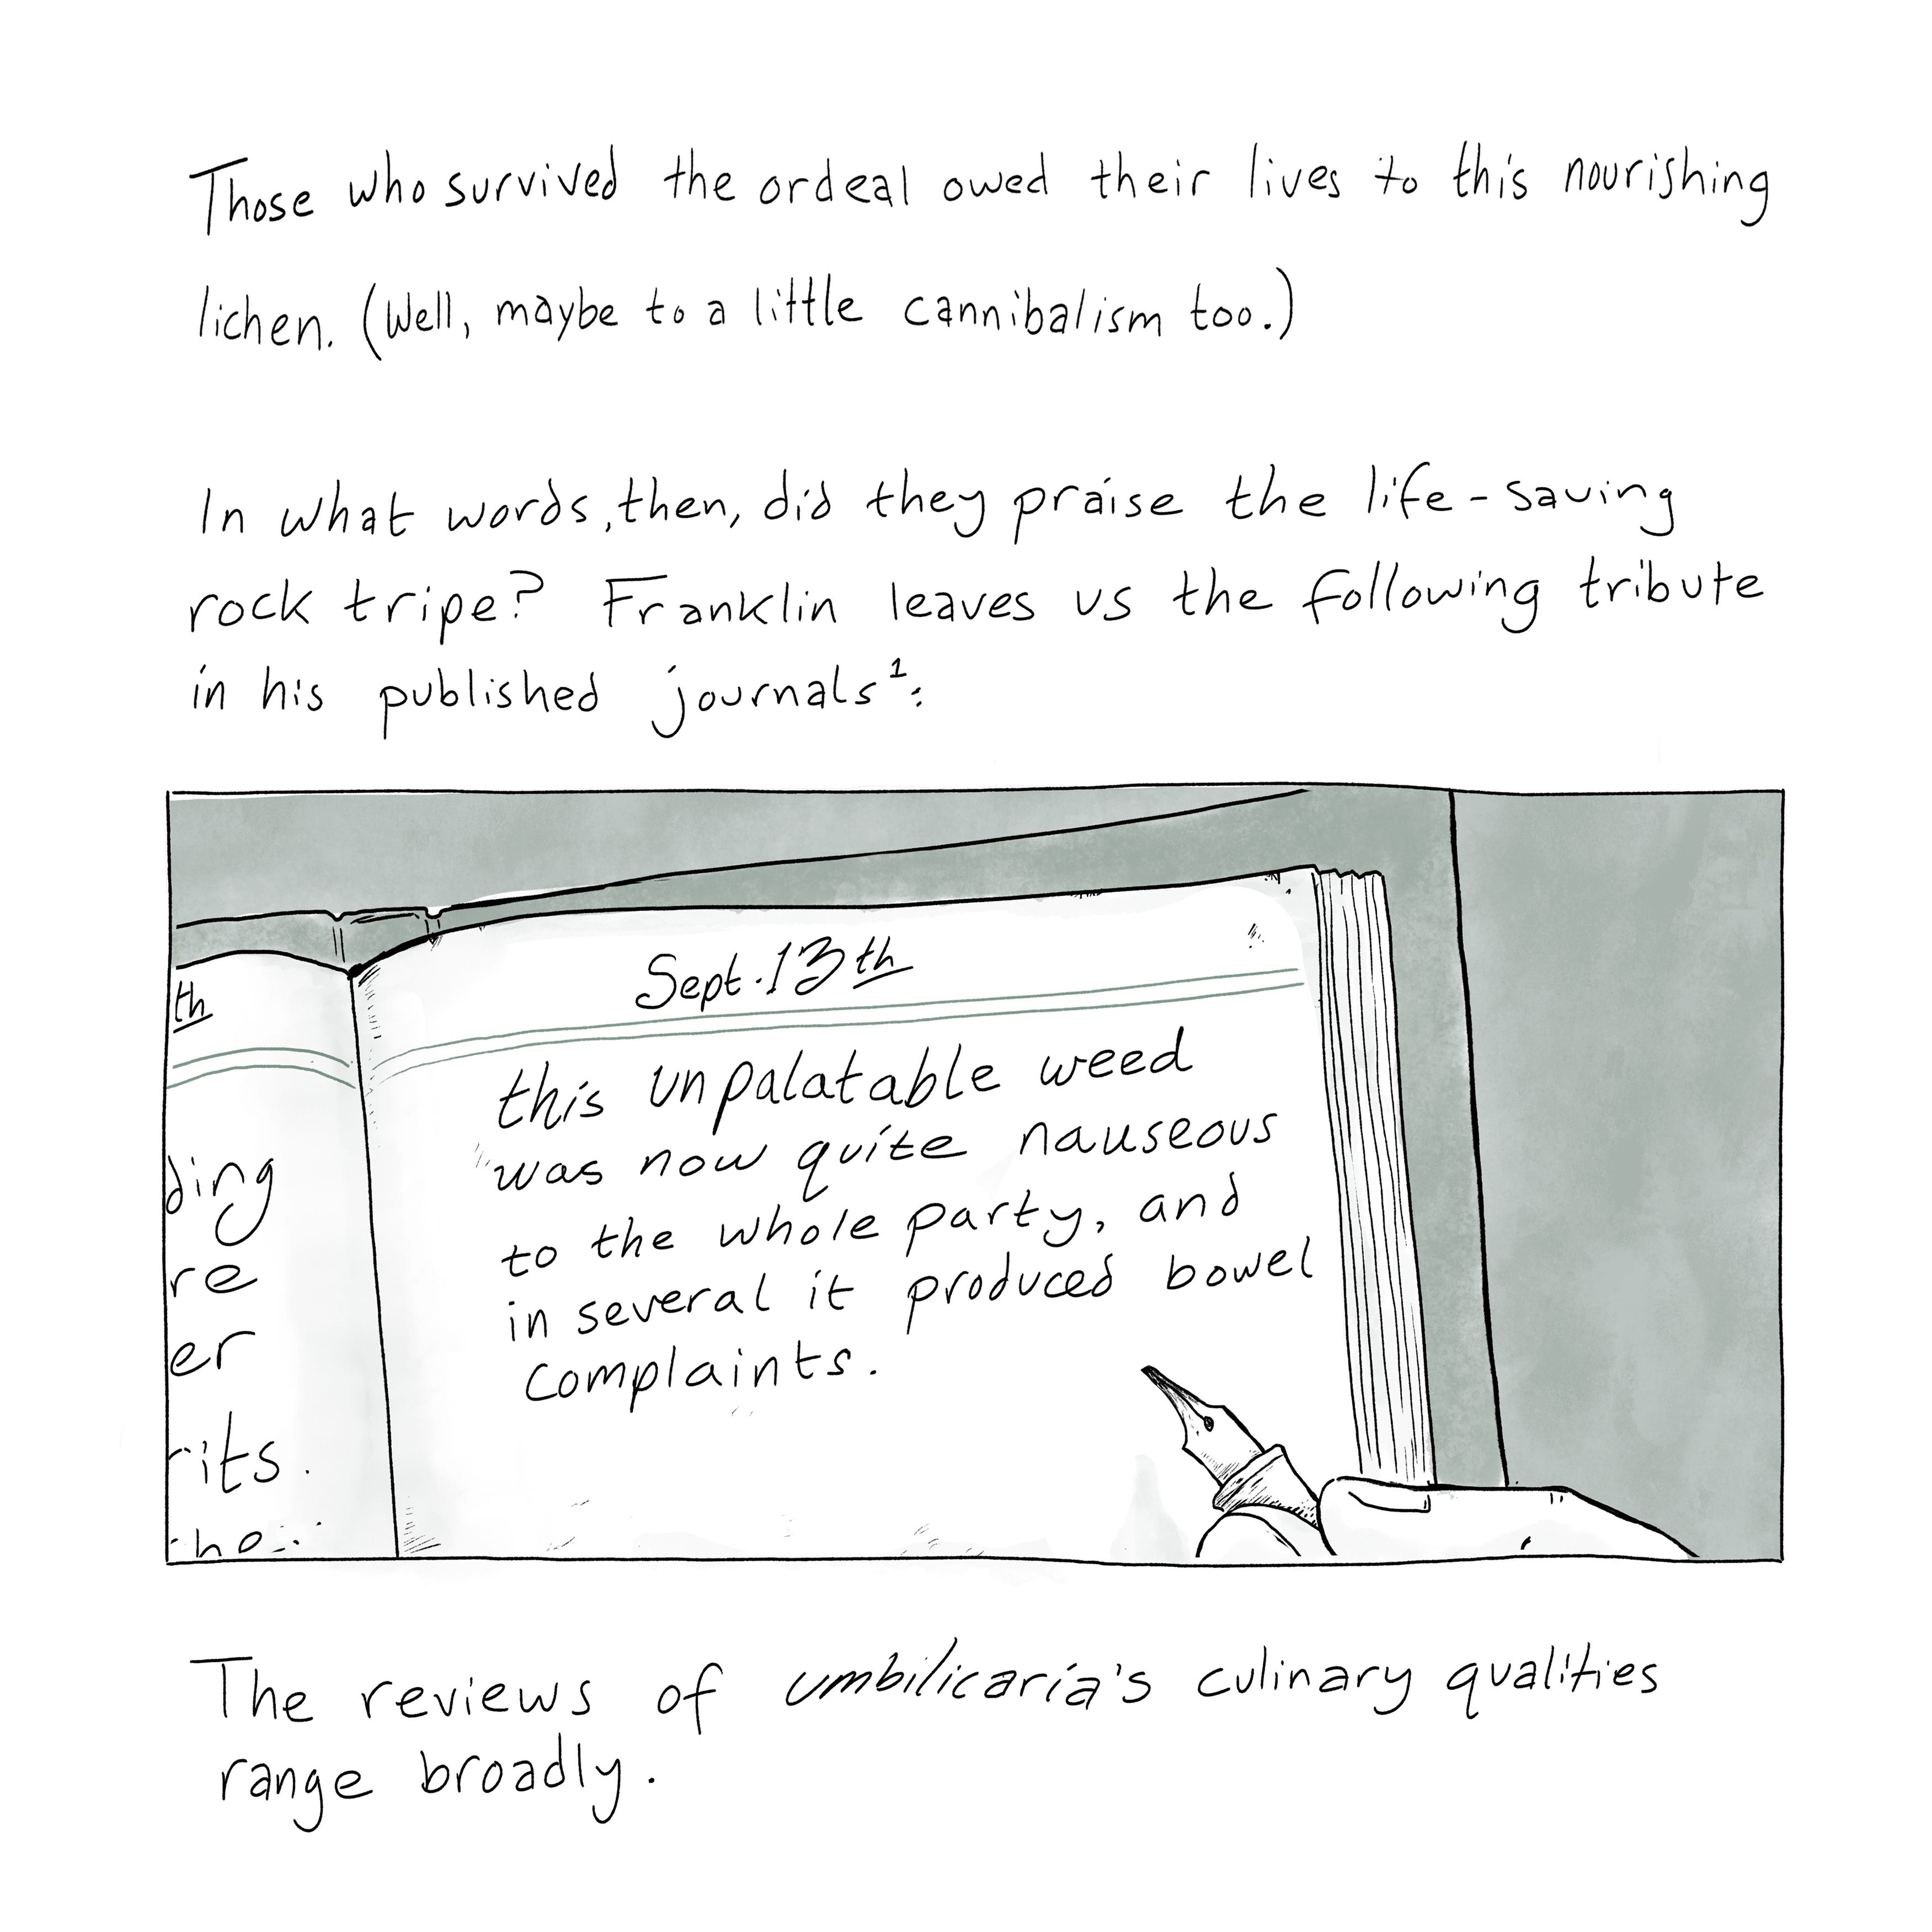 Those who survived the ordeal owed their lives to this nourishing
lichen. (Well, maybe to a little cannibalism too.)
In what words, then, did they praise the life-saving
rock tripe? Franklin leaves us the following tribute
in his published journals¹:
th
ding
re
er
rits.
Sept. 13th
this unpalatable weed
was now quite nauseous
to the whole party, and
in several it produced bowel
complaints.
The reviews of umbilicaria's culinary qualities
range broadly.